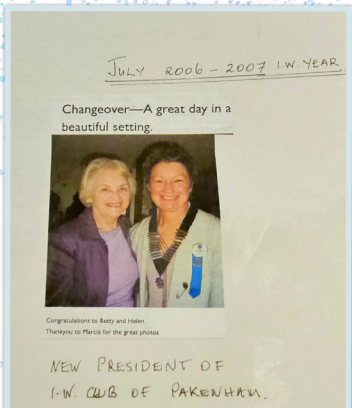 JULY 2006 - 2007 I.W. YEAR
Changeover—A great day in a
beautiful setting.
Congratulations to Betty and Helen.
Thankyou to Marcia for the great photos
NEW PRESIDENT OF
I.W. CLUB OF PAKENHAM.